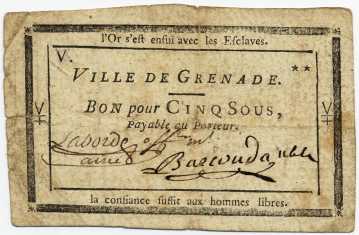 l'Or s'est enfui avec les Esclaves.
V.
**
VILLE DE GRENADE.
BON pour CINQ SOUS,
Payable au Porteur.
V V
Laborde
ainé
la confiance suffit aux hommes libres.